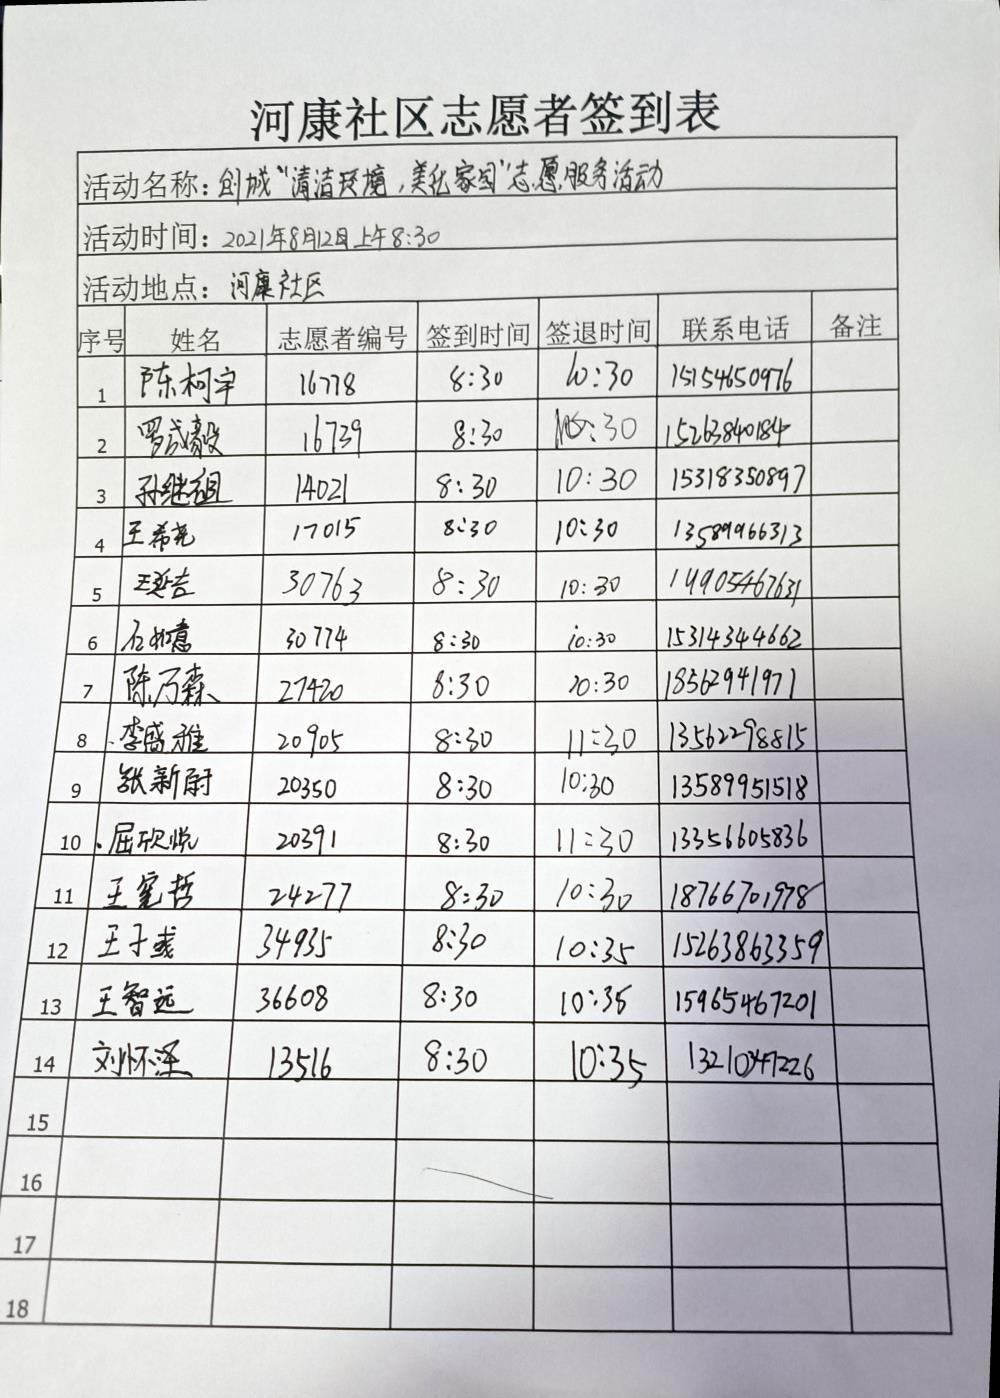 河康社区志愿者签到表
活动名称：创城“清洁环境，美化家园”志愿服务活动
活动时间：2021年8月12日上午8:30
活动地点：河康社区
序号 姓名 志愿者编号 签到时间 签退时间 联系电话 备注
1 陈柯宇 16778 8:30 10:30 15154650976
2 罗武毅 16739 8:30 :30 15263840184
3 孙继祖 14021 8:30 10:30 15318350897
4 王希尧 17015 8:30 10:30 13589966313
5 王延吉 30763 8:30 10:30
6 石如意 30774 8:30 10:30 15314344662
7 陈乃森 27420 8:30 10:30 18562941971
8 李盛雅 20905 8:30 11:30 13562298815
9 张新尉 20350 8:30 10:30 13589951518
10 屈欣悦 20391 8:30 11:30 13356605836
11 王宪哲 24277 8:30 10:30 18766701978
12 王子彧 34935 8:30 10:35 15263863359
13 王智远 36608 8:30 10:35 15965467201
14 刘怀泽 13516 8:30 10:35
15
16
17
18